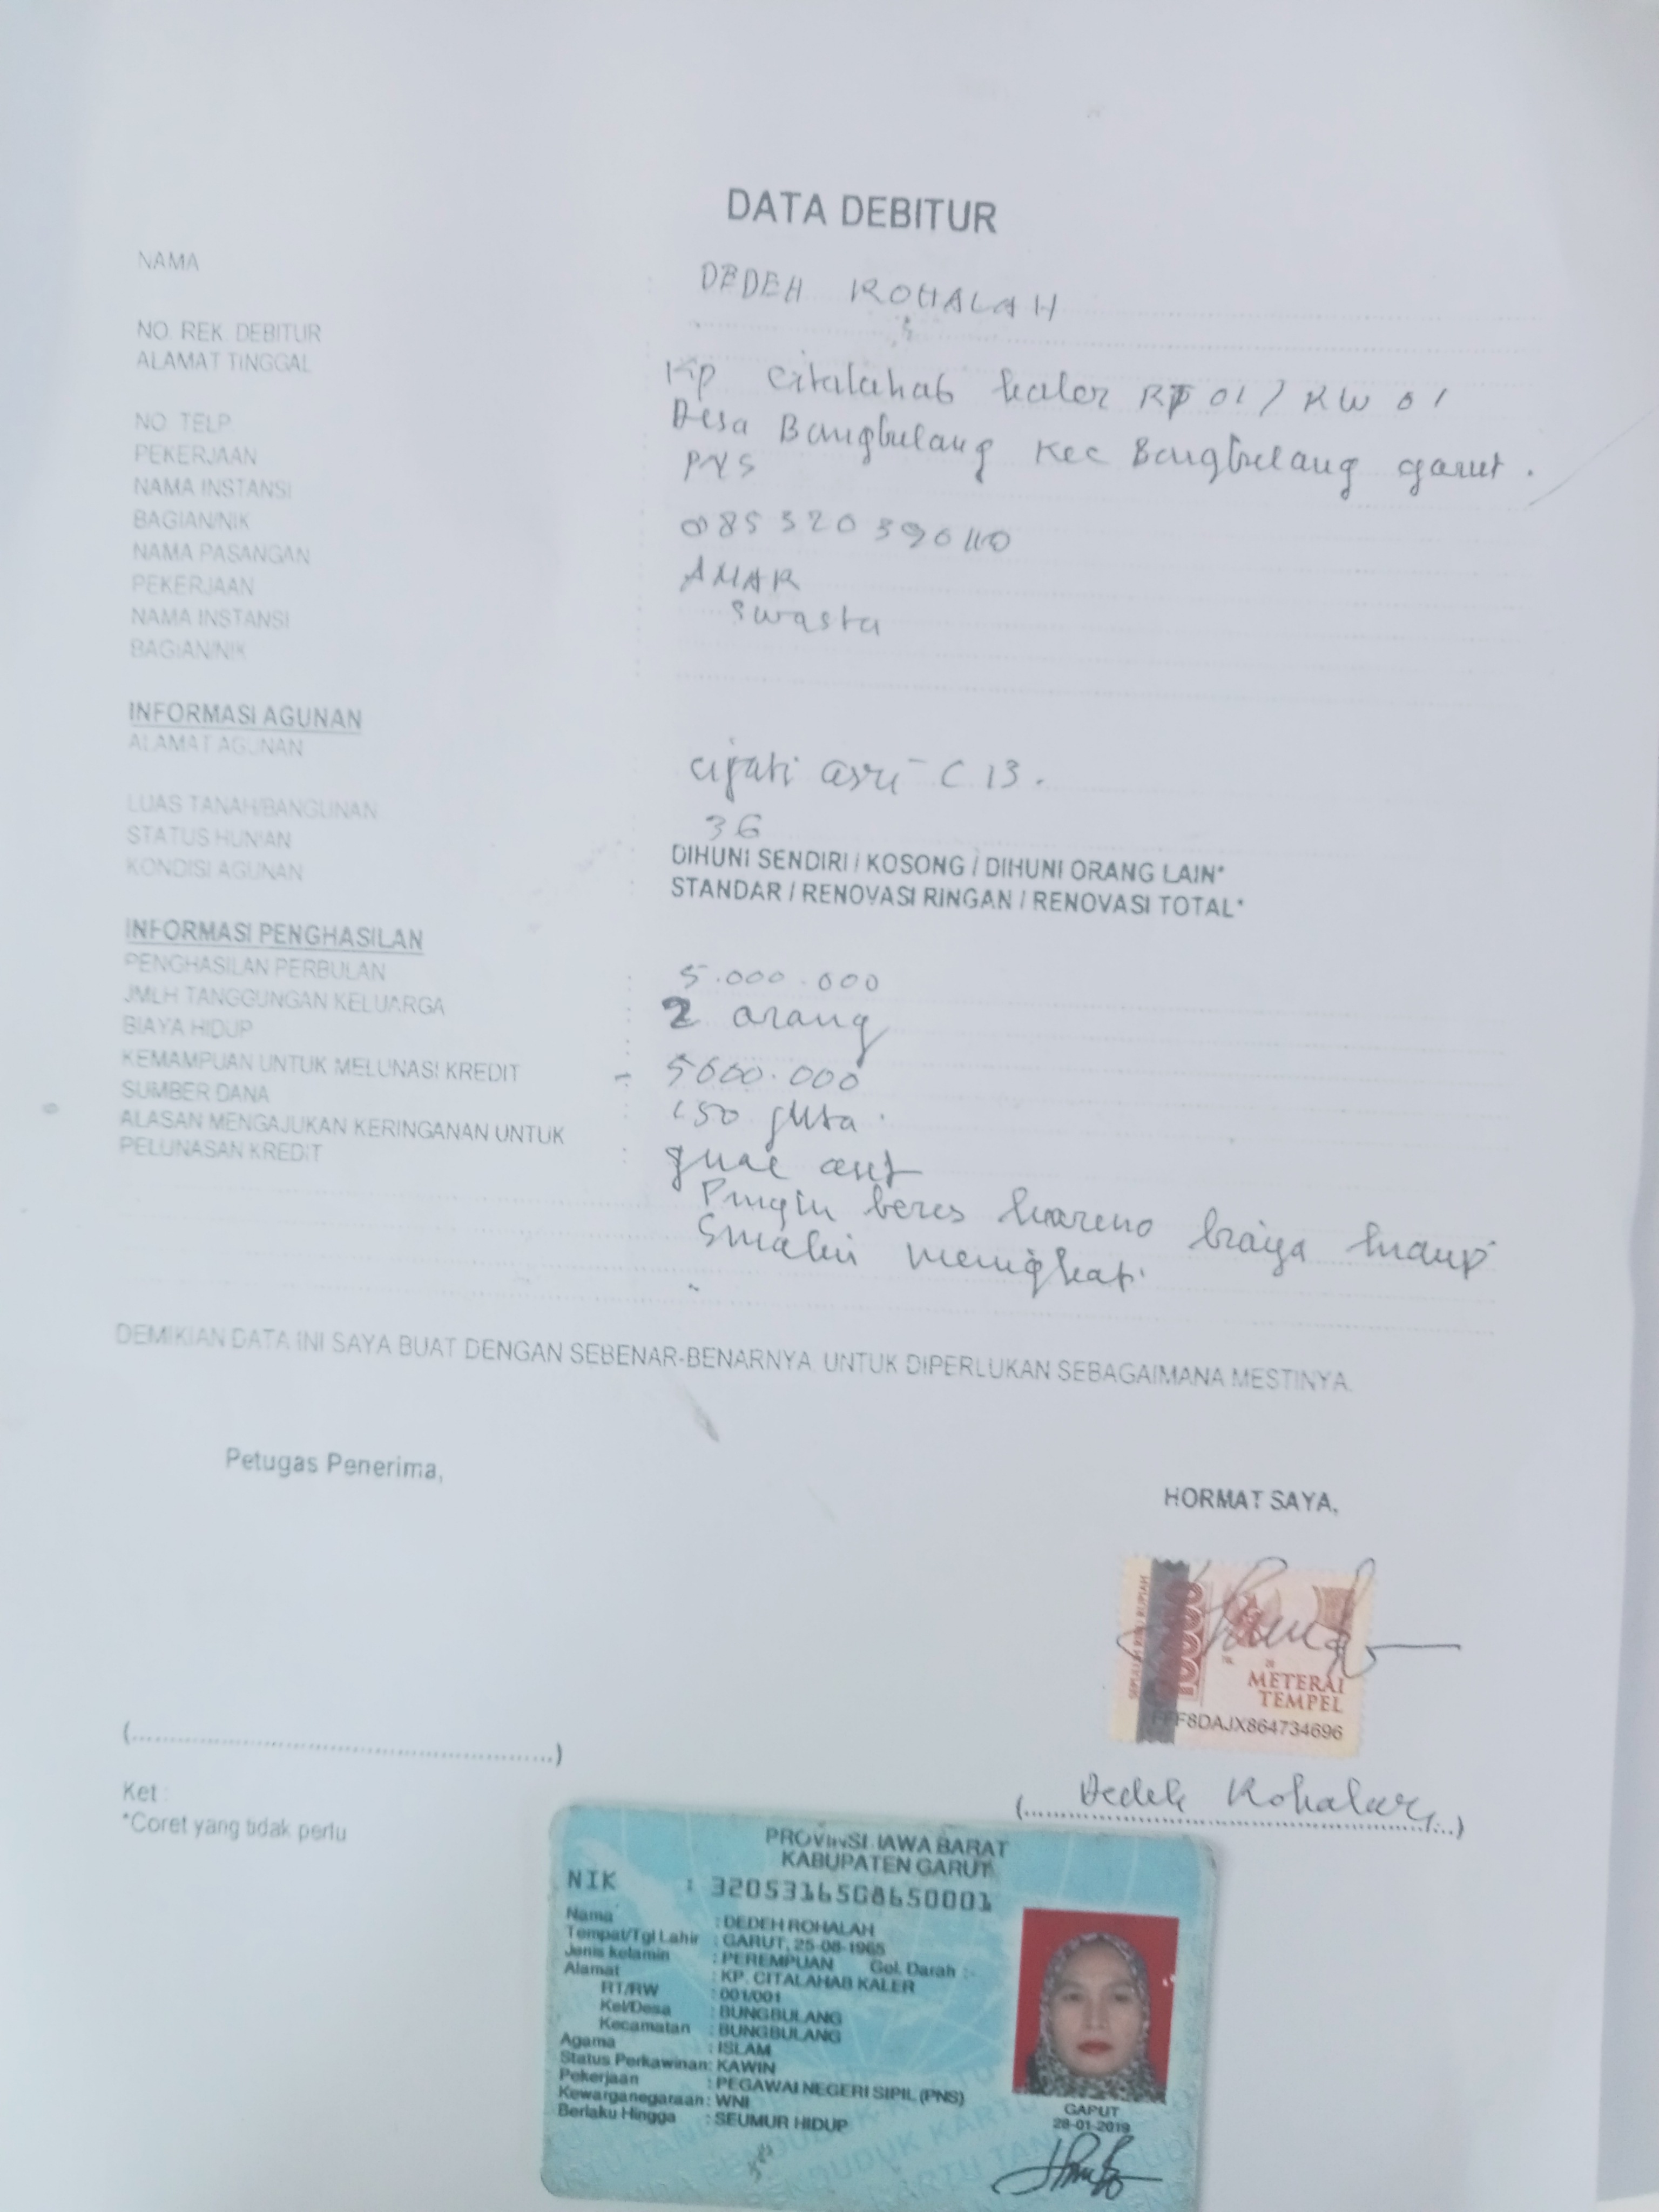 DATA DEBITUR
NAMA : DEDEH ROHALAH
NO. REK. DEBITUR
ALAMAT TINGGAL Kp Citalahab kaler RT 01 / RW 01
Desa Bungbulang Kec Bungbulang garut.
NO. TELP.
PEKERJAAN PNS
NAMA INSTANSI
BAGIAN/NIK 085320390110
NAMA PASANGAN AMAR
PEKERJAAN Swasta
NAMA INSTANSI
BAGIAN/NIK
INFORMASI AGUNAN
ALAMAT AGUNAN cijati asri - C 13.
LUAS TANAH/BANGUNAN 36
STATUS HUNIAN : DIHUNI SENDIRI / KOSONG / DIHUNI ORANG LAIN*
KONDISI AGUNAN : STANDAR / RENOVASI RINGAN / RENOVASI TOTAL*
INFORMASI PENGHASILAN
PENGHASILAN PERBULAN : 5.000.000
JMLH TANGGUNGAN KELUARGA : 2 orang
BIAYA HIDUP :
KEMAMPUAN UNTUK MELUNASI KREDIT 5000.000
SUMBER DANA : 150 juta.
ALASAN MENGAJUKAN KERINGANAN UNTUK
PELUNASAN KREDIT : jual aset
Pingin beres karena biaya hidup
meningkat.
DEMIKIAN DATA INI SAYA BUAT DENGAN SEBENAR-BENARNYA. UNTUK DIPERLUKAN SEBAGAIMANA MESTINYA.
Petugas Penerima,
HORMAT SAYA,
SEPULUH RIBU RUPIAH
10000
TGL. 20
METERAI
TEMPEL
F8DAJX864734696
(..........)
(Dedeh Rohalah)
Ket :
*Coret yang tidak perlu
PROVINSI JAWA BARAT
KABUPATEN GARUT
NIK : 3205316508650001
Nama : DEDEH ROHALAH
Tempat/Tgl Lahir : GARUT, 25-08-1965
Jenis kelamin : PEREMPUAN Gol. Darah :-
Alamat : KP. CITALAHAB KALER
RT/RW : 001/001
Kel/Desa : BUNGBULANG
Kecamatan : BUNGBULANG
Agama : ISLAM
Status Perkawinan: KAWIN
Pekerjaan : PEGAWAI NEGERI SIPIL (PNS)
Kewarganegaraan: WNI
Berlaku Hingga : SEUMUR HIDUP
GARUT
28-01-2019